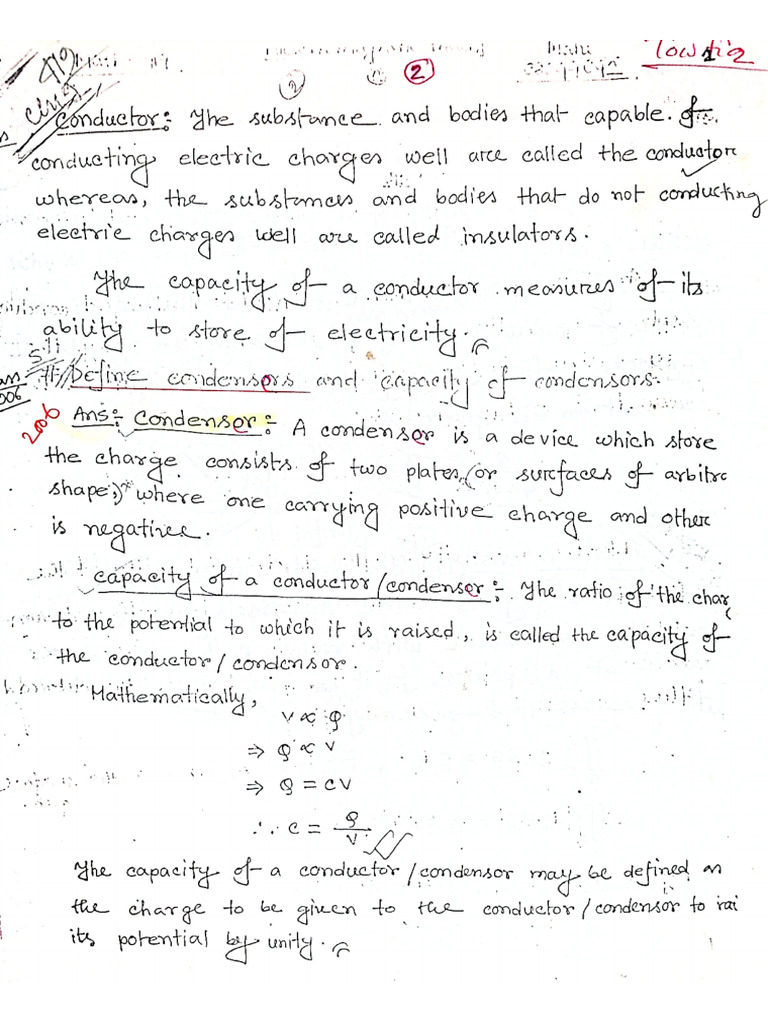 2
Conductor:- The substance and bodies that capable of
conducting electric charges well are called the conductor
whereas, the substances and bodies that do not conducting
electric charges well are called insulators.
The capacity of a conductor measures of its
ability to store of electricity.
Define condensors and capacity of condensors.
2006
Ans:- Condenser:- A condenser is a device which store
the charge consists of two plates (or surfaces of arbitra
shape,) where one carrying positive charge and other
is negative.
capacity of a conductor/condenser:- The ratio of the char
to the potential to which it is raised, is called the capacity of
the conductor/condensor.
Mathematically,
V ∝ Q
⇒ Q ∝ V
⇒ Q = CV
∴ C = Q/V
The capacity of a conductor/condensor may be defined as
the charge to be given to the conductor/condensor to rai
its potential by unity.